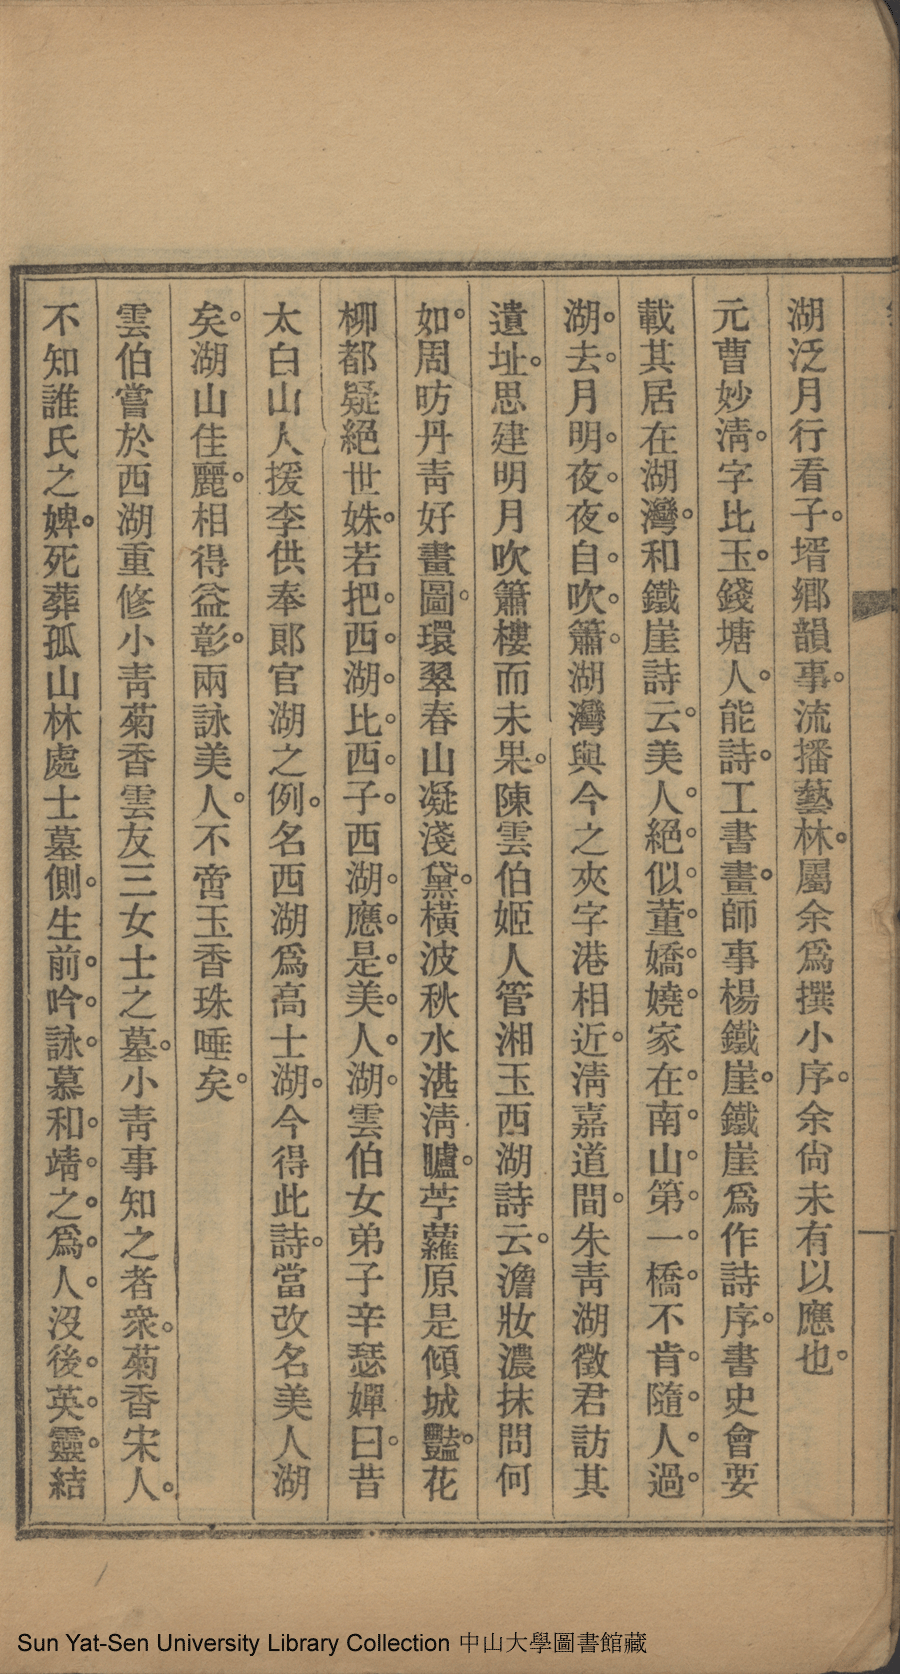 湖泛月行看子。壻鄉韻事。流播藝林。屬余爲撰小序。余尙未有以應也。
元曹妙淸。字比玉。錢塘人。能詩。工書畫。師事楊鐵崖。鐵崖爲作詩序。書史會要
載其居在湖灣。和鐵崖詩云。美人。絕。似。董。嬌。嬈。家在。南。山。第。一。橋。不肯。隨。人。過。
湖。去。月明。夜。夜。自。吹。簫。湖灣與今之夾字港相近。淸嘉道間。朱靑湖徵君訪其
遺址。思建明月吹簫樓而未果。陳雲伯姬人管湘玉西湖詩云。澹妝濃抹問何
如。周昉丹靑好畫圖。環翠春山凝淺黛。橫波秋水湛淸矑。苧蘿原是傾城豔。花
柳都疑絕世姝。若把。西。湖。比。西。子。西湖。應。是。美。人。湖。雲伯女弟子辛瑟嬋曰。昔
太白山人援李供奉郞官湖之例。名西湖爲高士湖。今得此詩。當改名美人湖
矣。湖山佳麗。相得益彰。兩詠美人。不啻玉香珠唾矣。
雲伯嘗於西湖重修小靑菊香雲友三女士之墓。小靑事知之者衆。菊香宋人。
不知誰氏之婢。死葬孤山林處士墓側。生前。吟。詠。慕和。靖。之。爲。人。沒後。英。靈。結
Sun Yat-Sen University Library Collection 中山大學圖書館藏